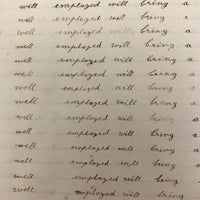 well employed will bring a
well employed will bring a
well employed will bring a
well employed will bring a
well employed will bring a
well employed will bring a
well employed will bring a
well employed will bring a
well employed will bring a
well employed will bring a
well employed will bring a
well employed will bring a
well employed will bring a